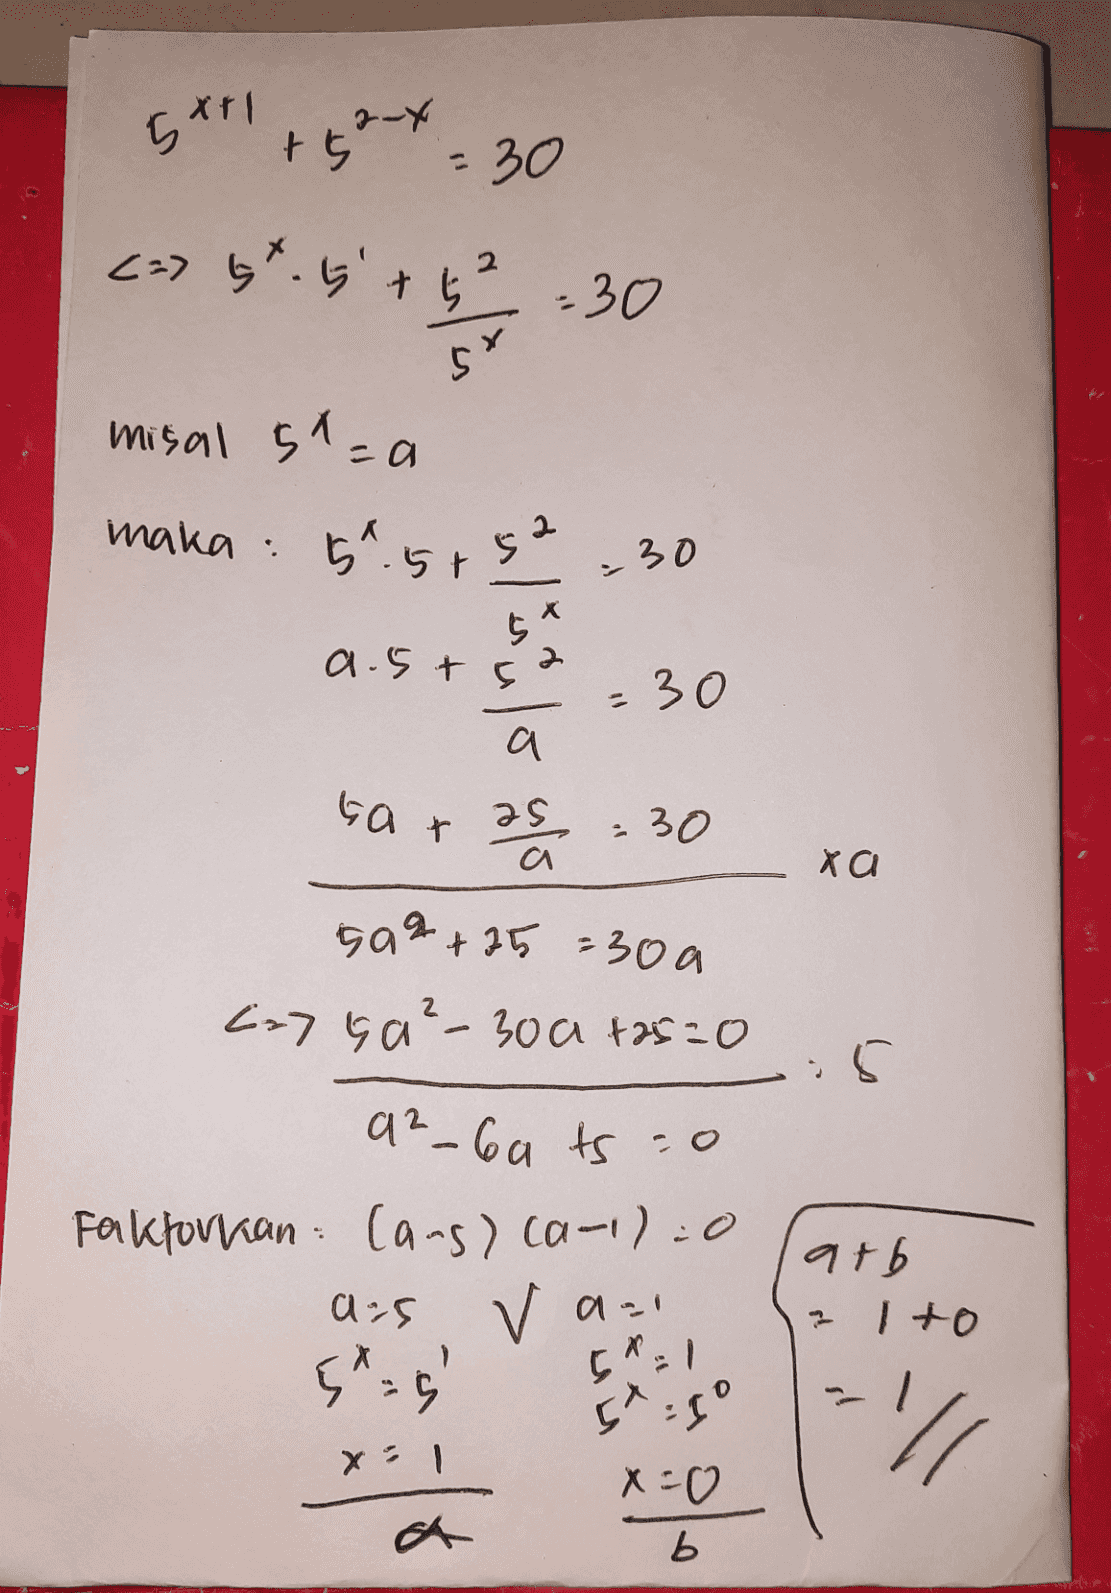 5^(x+1) + 5^(2-x) = 30
<=> 5^x . 5^1 + 5^2/5^x = 30
misal 5^x = a
maka : 5^x . 5 + 5^2/5^x = 30
a . 5 + 5^2/a = 30
5a + 25/a = 30 xa
5a^2 + 25 = 30a
<=> 5a^2 - 30a + 25 = 0 : 5
a^2 - 6a + 5 = 0
Faktorkan : (a-5) (a-1) = 0
a = 5 V a = 1
5^x = 5^1 5^x = 1
5^x = 5^0
x = 1 x = 0
a b
a + b
= 1 + 0
= 1 //